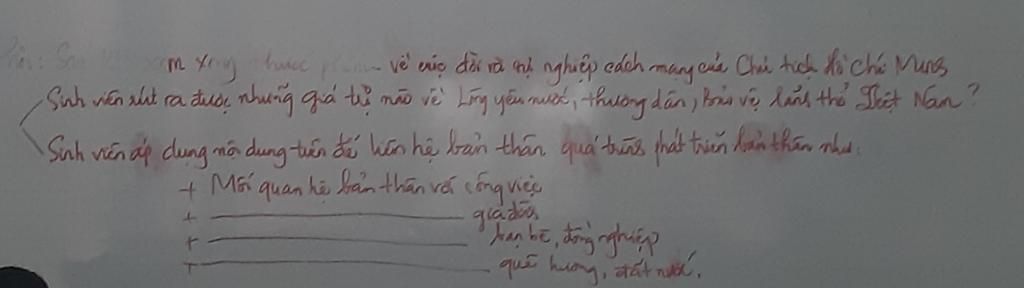 xem xong thước phim về cuộc đời và sự nghiệp cách mạng của Chủ tịch Hồ Chí Minh
Sinh viên rút ra được những giá trị nào về Lòng yêu nước, thương dân, bảo vệ lãnh thổ Việt Nam?
Sinh viên áp dụng nội dung trên để liên hệ bản thân quá trình phát triển bản thân như:
+ Mối quan hệ bản thân với công việc
+ ———— gia đình
+ ———— bạn bè, đồng nghiệp
+ ———— quê hương, đất nước.